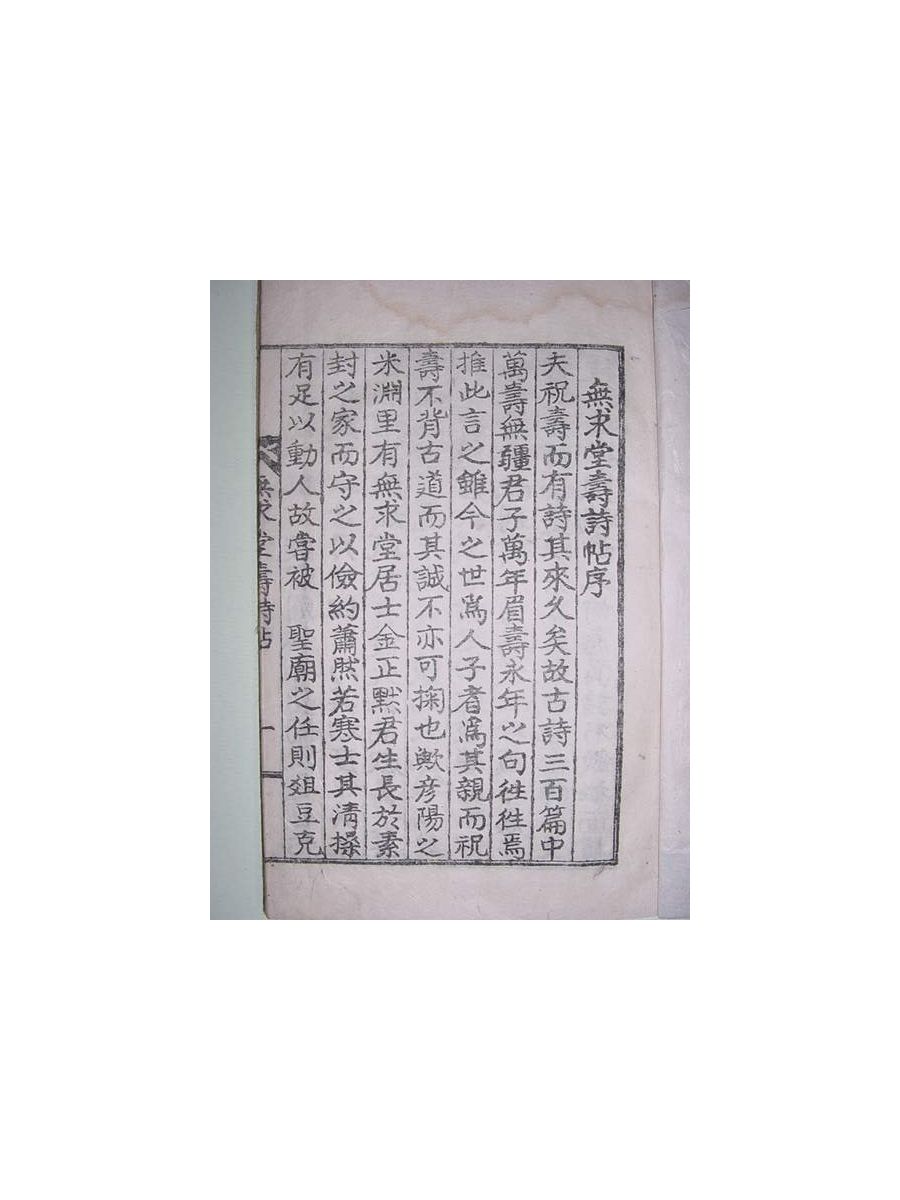 無求堂壽詩帖序
夫祝壽而有詩其來久矣故古詩三百篇中
萬壽無疆君子萬年眉壽永年之句徃徃焉
推此言之雖今之世爲人子者爲其親而祝
壽不背古道而其誠不亦可掬也歟彦陽之
米淵里有無求堂居士金正黙君生長於素
封之家而守之以儉約蕭然若寒士其清操
有足以動人故嘗被 聖廟之任則爼豆克
無求堂壽詩帖 一